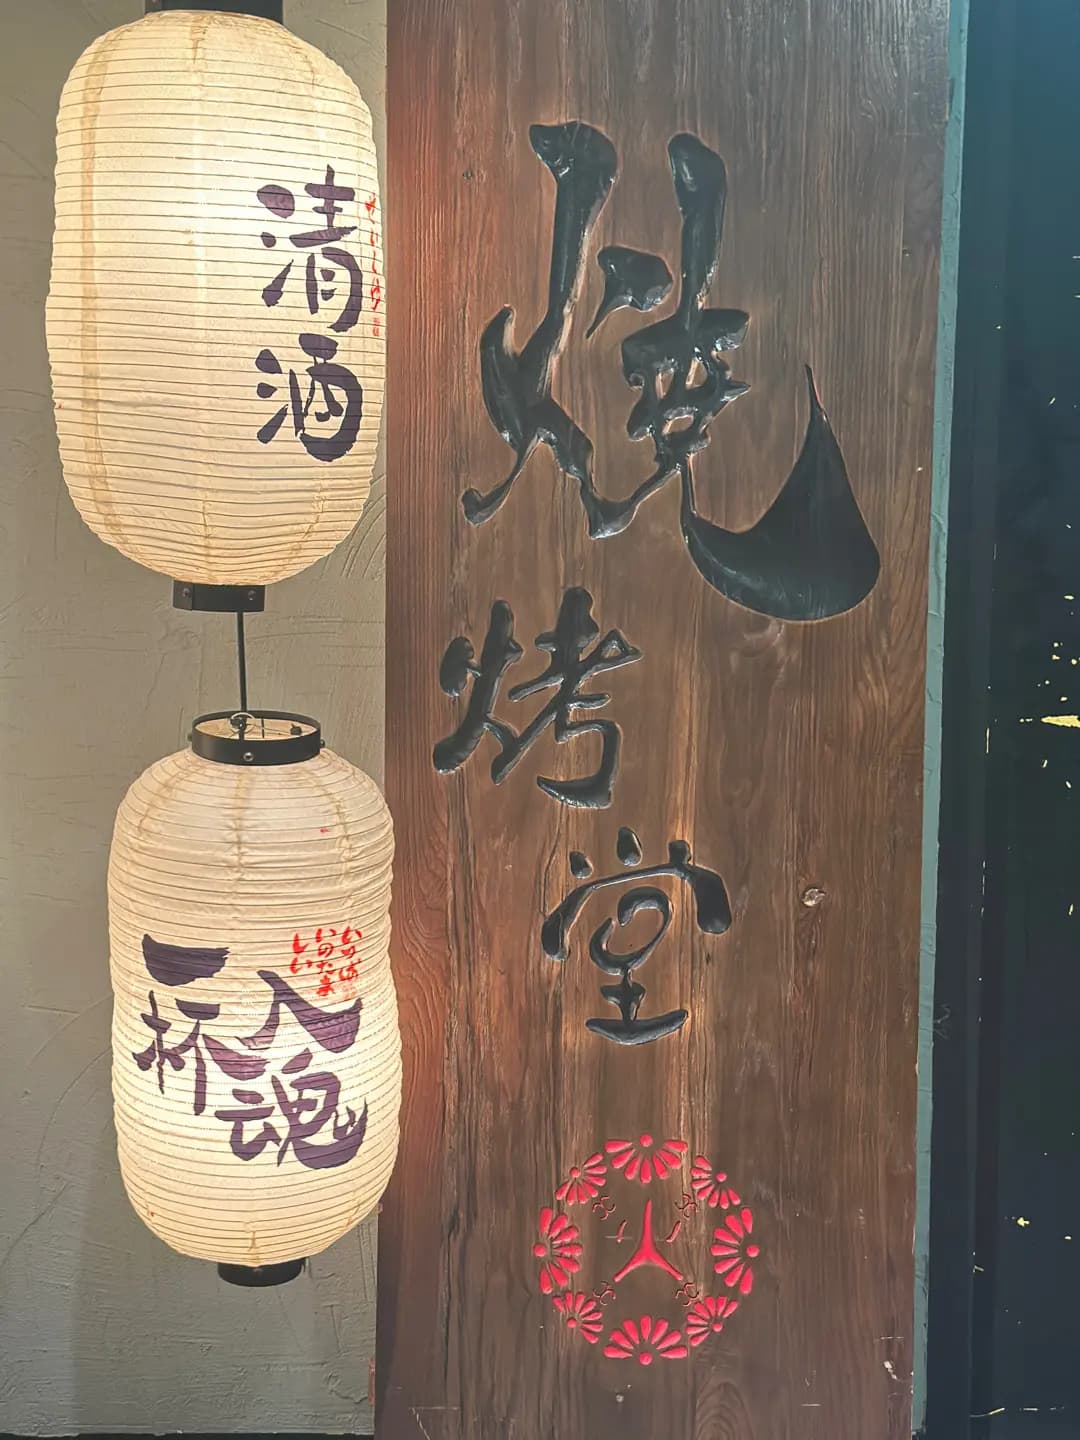 清酒
いっぱ
いのたま
しい
一杯
入魂
燒烤堂